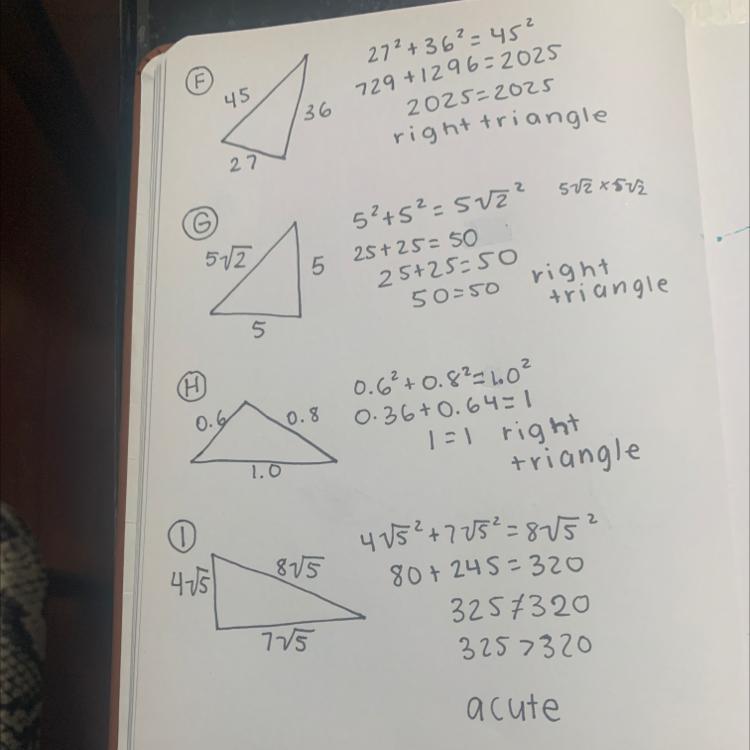 F
45
36
27
27² + 36² = 45²
729 + 1296 = 2025
2025 = 2025
right triangle
G
5√2
5
5
5² + 5² = 5√2²
5√2 × 5√2
25 + 25 = 50
25 + 25 = 50
50 = 50
right
triangle
H
0.6
0.8
1.0
0.6² + 0.8² = 1.0²
0.36 + 0.64 = 1
1 = 1 right
triangle
I
4√5
8√5
7√5
4√5² + 7√5² = 8√5²
80 + 245 = 320
325 ≠ 320
325 > 320
acute